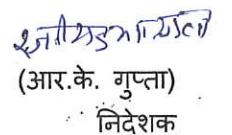 (आर.के. गुप्ता)
निदेशक